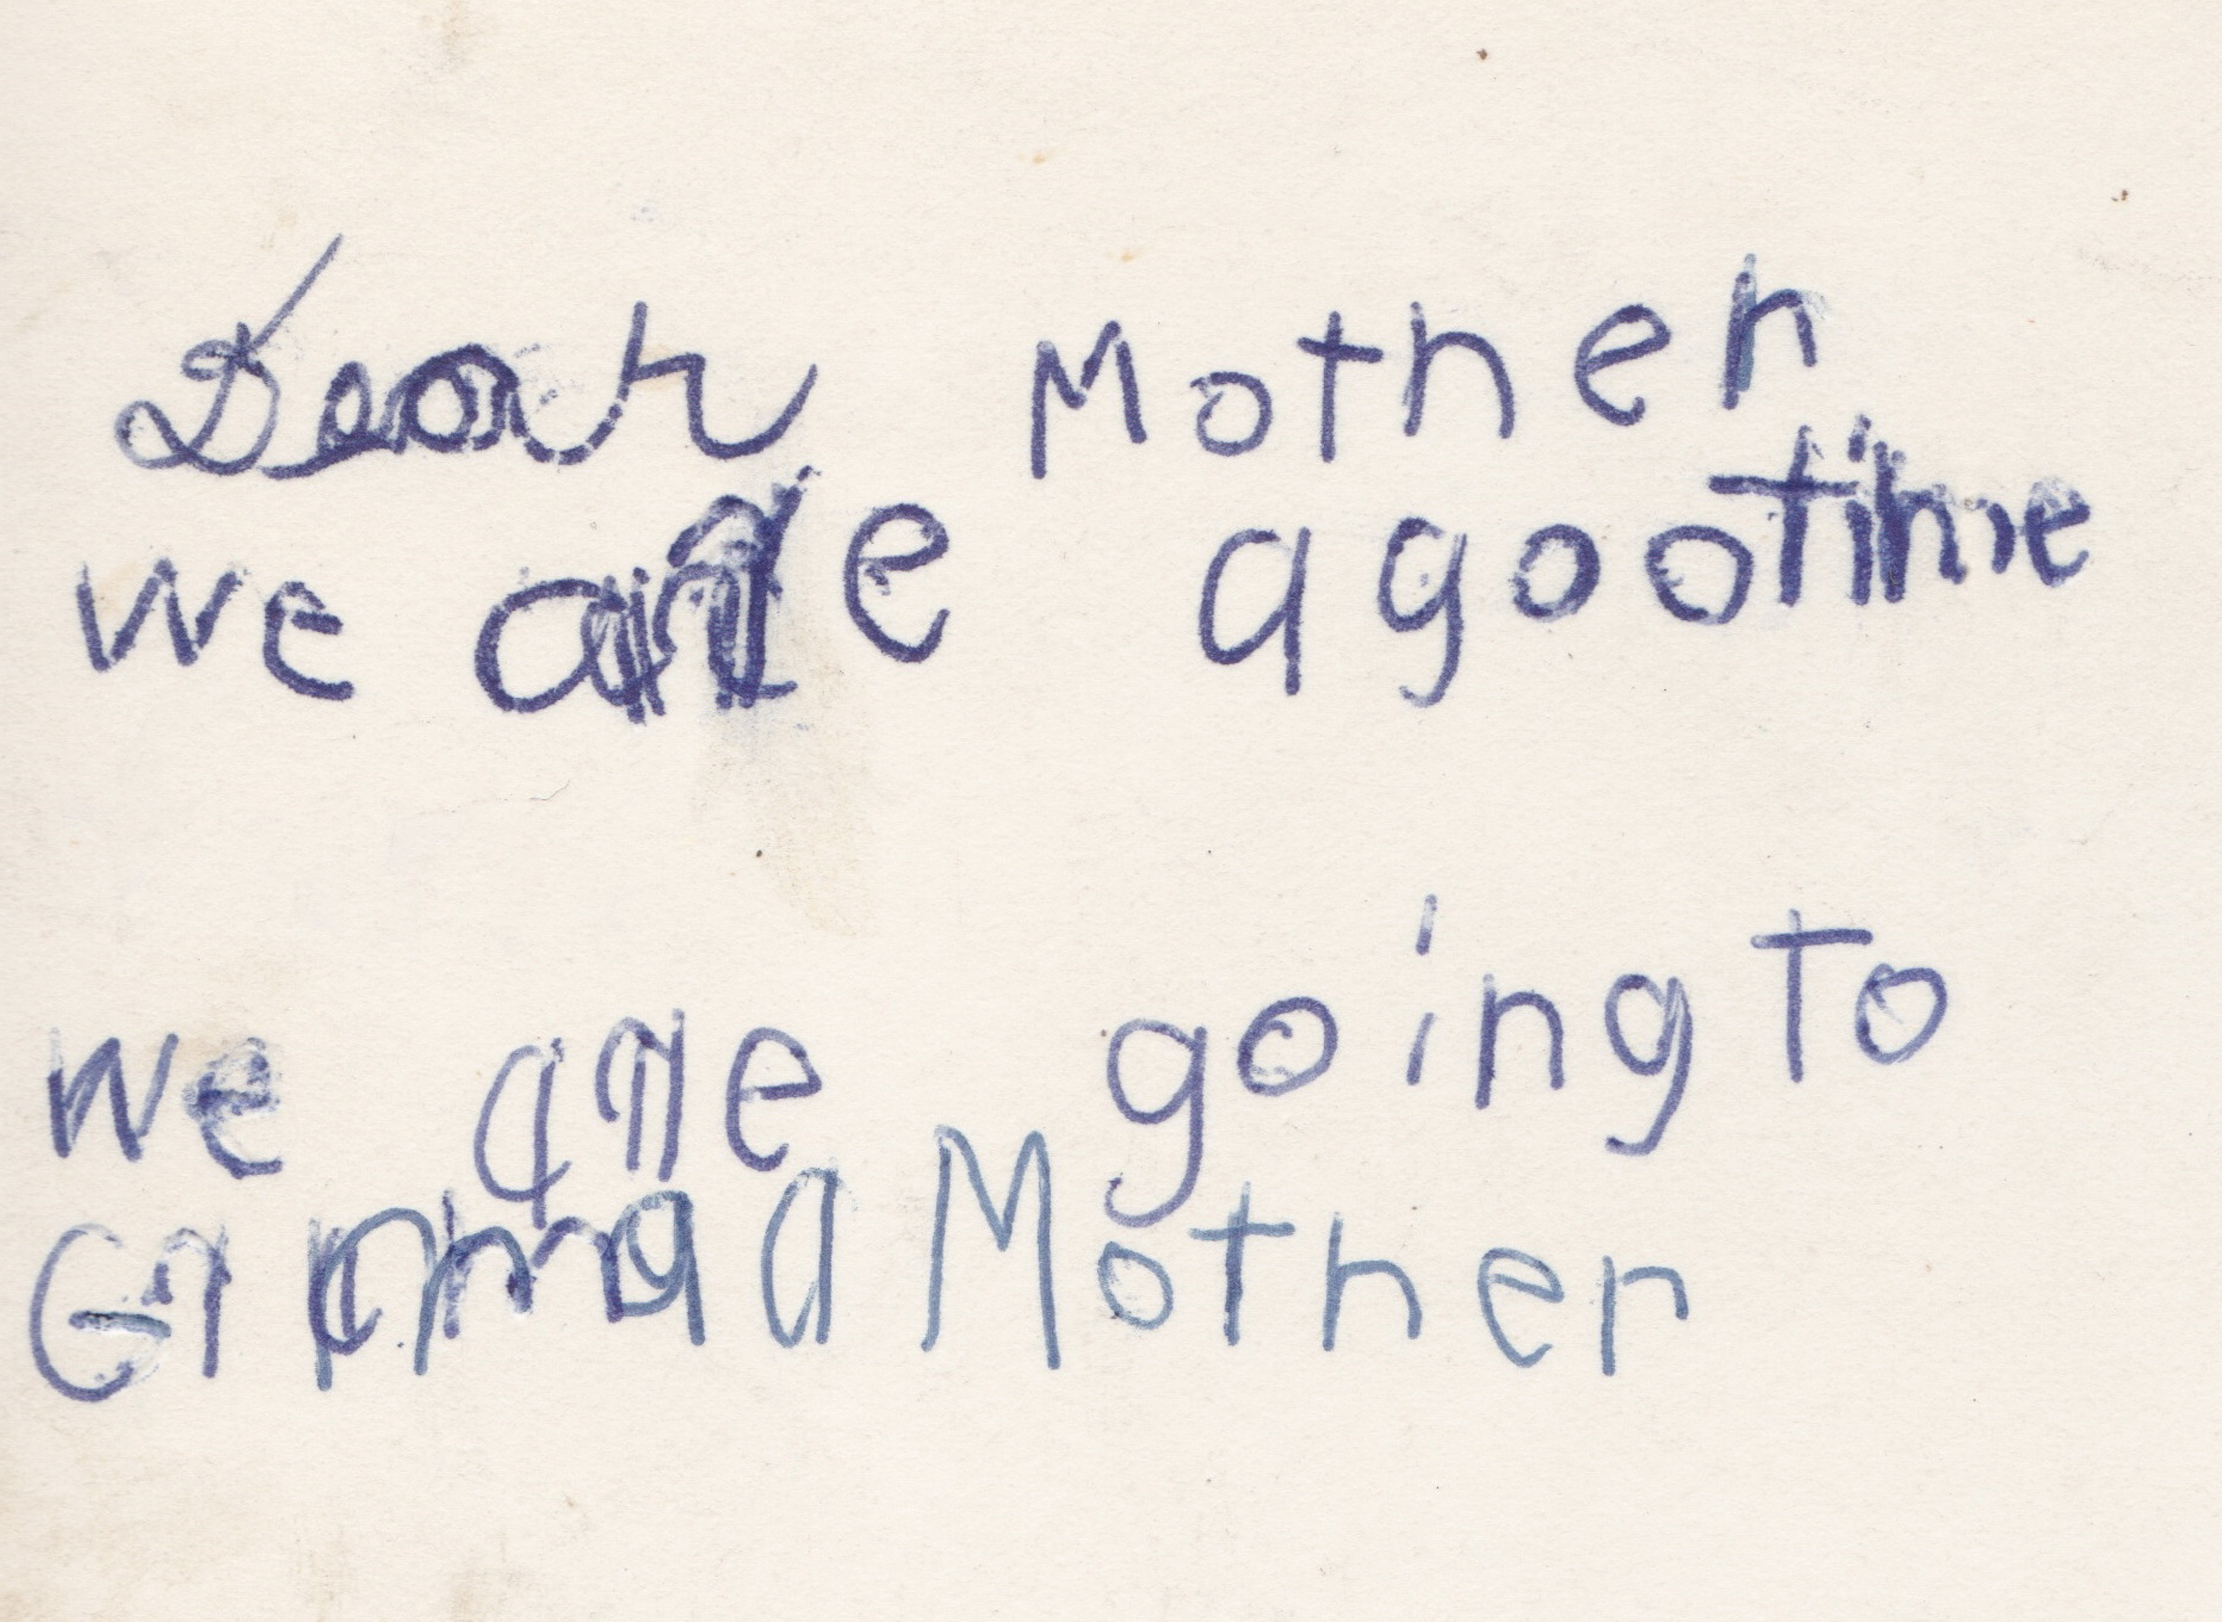 Dear Mother
we are a gootime
we are going to
Grandmother